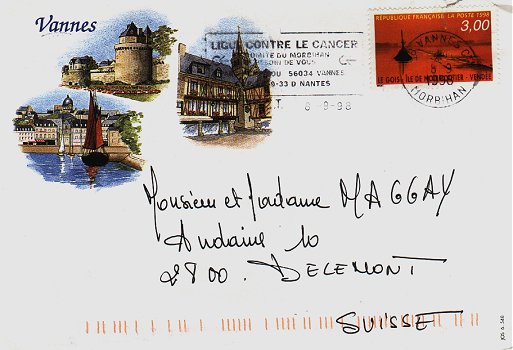 Vannes
LIGUE CONTRE LE CANCER
COMITE DU MORBIHAN
BESOIN DE VOUS
56034 VANNES
-33 D NANTES
8-9-98
REPUBLIQUE FRANÇAISE LA POSTE 1998
3,00
LE GOIS - ILE DE NOIRMOUTIER - VENDÉE
VANNES
1998
MORBIHAN
Monsieur et Madame MAGGAY
Andaine 10
2800. DELEMONT
SUISSE